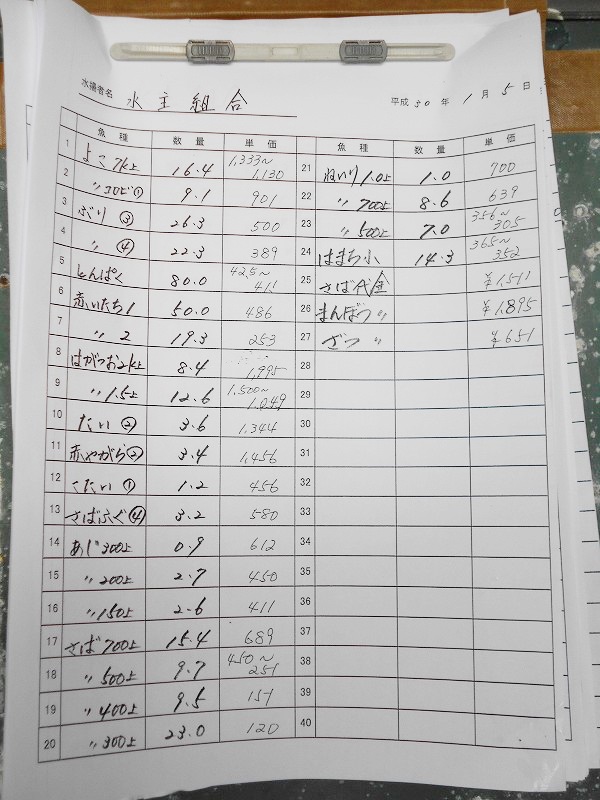 水揚者名 水主組合 平成 30 年 1 月 5 日
魚種 数量 単価 魚種 数量 単価
1 よこ7k上 16.4 1,333〜1,130
2 〃コビ① 9.1 901
3 ぶり③ 26.3 500
4 〃④ 22.3 389
5 とんぱく 80.0 425〜411
6 赤いたち1 50.0 486
7 〃2 19.3 253
8 はがつお2k上 8.4 1,995
9 〃1.5上 12.6 1,500〜1,049
10 たい② 3.6 1,344
11 赤やがら② 3.4 1,456
12 こたい① 1.2 456
13 さばふぐ④ 3.2 580
14 あじ300上 0.9 612
15 〃200上 2.7 450
16 〃150上 2.6 411
17 さば700上 15.4 689
18 〃500上 9.7 450〜251
19 〃400上 9.5 151
20 〃300上 23.0 120
21 ねいり1.0上 1.0 700
22 〃700上 8.6 639
23 〃500上 7.0 356〜305
24 はまち小 14.3 365〜352
25 さば代金 ¥1,511
26 まんぼう〃 ¥1,895
27 ざつ〃 ¥651
28
29
30
31
32
33
34
35
36
37
38
39
40